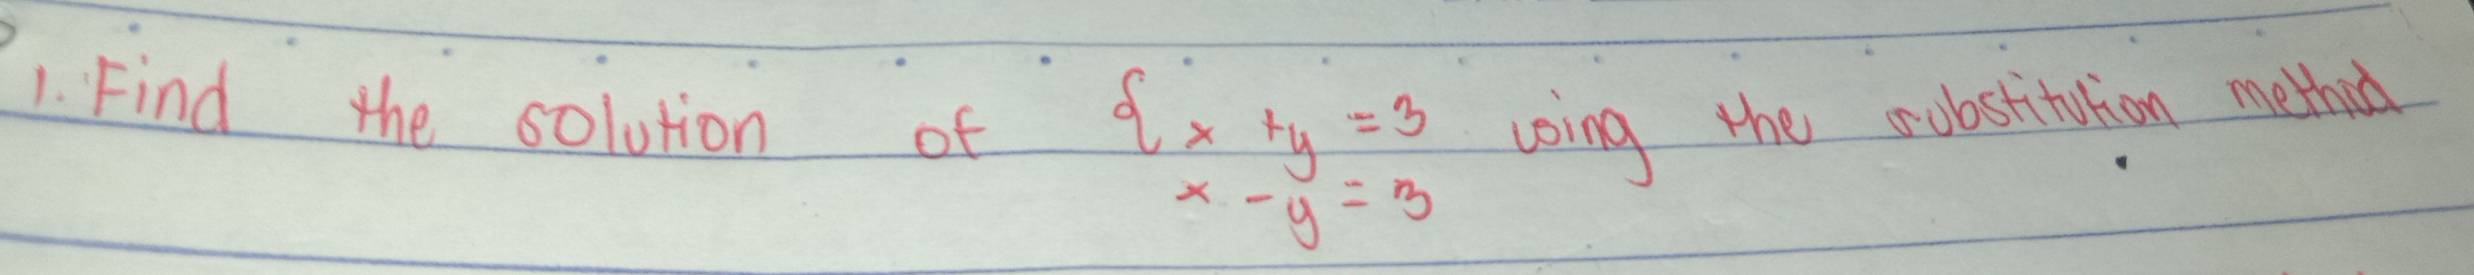 1. Find the solution of { x + y = 3 using the substitution method
x - y = 3